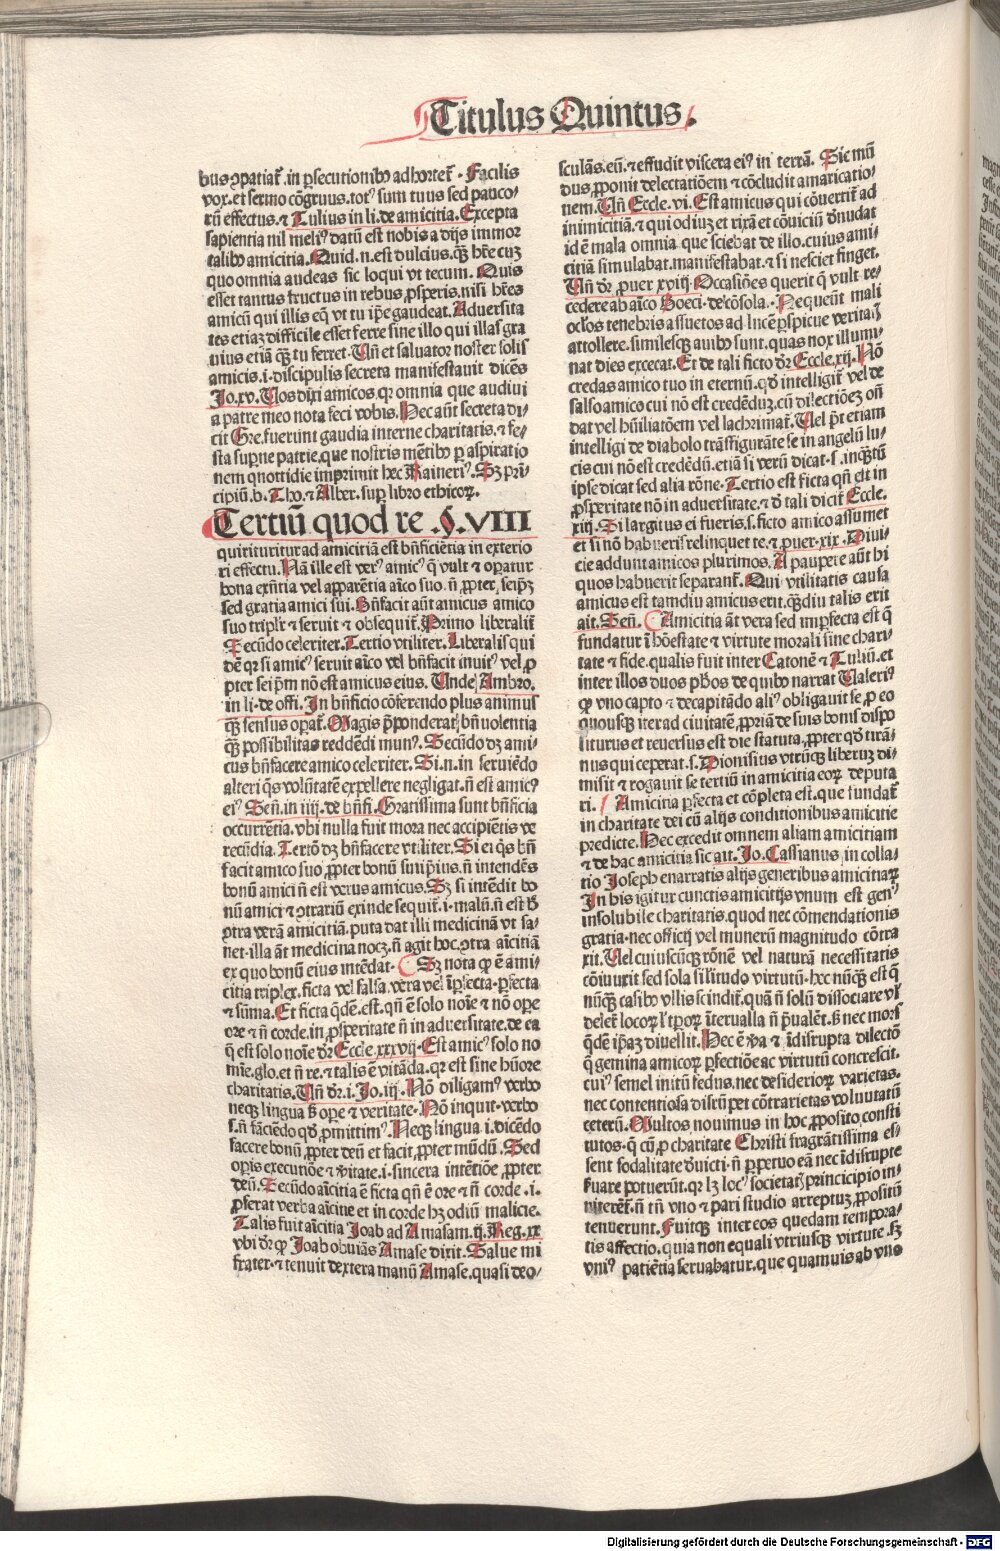 Titulus Quintus.
bus ꝯpatiat᷑. in ꝑsecutionibꝰ adhortet᷑. Facilis
vox. et sermo cõgruus. totꝰ sum tuus sed pauco⸗
rũ effectus. ⁊ Tulius in li. de amicitia. Excepta
sapientia nil meliꝰ datũ est nobis a dijs immor
talibꝰ amicitia. Quid. n. est dulcius. qꝫ̃ hr̃e cuz
quo omnia audeas sic loqui vt tecum. Quis
esset tantus fructus in rebus ꝓsperis. nisi hr̃es
amicũ qui illis eq̃ vt tu ip̃e gaudeat. Aduersita
tes etiaz difficile esset ferre sine illo qui illas gra
uius etiã qꝫ̃ tu ferret. Vñ et saluator noster solis
amicis. i. discipulis secreta manifestauit dicẽs
Jo. xv. Vos dixi amicos. qꝛ omnia que audiui
a patre meo nota feci vobis. Hec aũt secreta di⸗
cit Gre. fuerunt gaudia interne charitatis. ⁊ fe⸗
sta suꝑne patrie. que nostris mẽtibꝰ ꝑ aspiratio
nem quottidie imprimit hec Raineriꝰ. Sꝫ prĩ⸗
cipiũ. b. Tho. ⁊ Alber. suꝑ libro ethicoꝝ.
Tertiũ quod re .§. VIII
quiritur ad amicitiã est bñficiẽtia in exterio
ri effectu. Nã ille est verꝰ amicꝰ q̃ vult ⁊ oꝑatur
bona exñtia vel apparẽtia aĩco suo. ñ ꝓpter seipꝫ̃
sed gratia amici sui. Bñfacit aũt amicus amico
suo tripl̃r ⁊ seruit ⁊ obsequit᷑. Primo liberalit᷑
Secũdo celeriter. Tertio vtiliter. Liberalis qui
dẽ qꝛ si amicꝰ seruit aĩco vel bñfacit inuitꝰ vel ꝓ
pter seip̃m nõ est amicus eius. Vnde Ambro.
in li. de offi. In bñficio cõferendo plus animus
qꝫ̃ sensus oꝑat᷑. Magis p̃ponderat bñuolentia
qꝫ̃ possibilitas reddẽdi munꝰ. Secũdo dꝫ ami⸗
cus bñfacere amico celeriter. Si. n. in seruiẽdo
alteri q̃s volũtatẽ expellere negligat. ñ est amicꝰ
eiꝰ. Señ. in iiij. de bñfi. Gratissima sunt bñficia
occurrẽtia. vbi nulla fuit mora nec accipiẽtis ve
recũdia. Tertõ dꝫ bñfacere vtiliter. Si ei q̃s bñ
facit amico suo ꝓpter bonũ suip̃ius. ñ intendẽs
bonũ amici ñ est verus amicus. Sꝫ si intẽdit bo
nũ amici ⁊ ꝯtrariũ exinde sequit᷑. i. malũ. ñ est ꝭ
ꝯtra verã amicitiã. puta dat illi medicinã vt sa⸗
net. illa ãt medicina nocꝫ. ñ agit hoc ꝯtra aĩcitiã
ex quo bonũ eius intẽdat. Sꝫ nota qꝙ ẽ ami⸗
citia triplex. ficta vel falsa. vera vel ĩꝑfecta. ꝑfecta
⁊ sũma. Et ficta q̃dẽ. est. qñ ẽ solo noĩe ⁊ nõ oꝑe
ore ⁊ ñ corde. in ꝓsperitate ñ in aduersitate. de ea
q̃ est solo noĩe dr̃ Eccle. xxxvij. Est amicꝰ solo no
mĩe. glo. et ñ re. ⁊ talis ẽ vitãda. qꝛ est sine hũore
charitatis. Vñ dr̃. i. Jo. iij. Nõ diligamꝰ verbo
neqꝫ lingua ꝭ oꝑe ⁊ veritate. Nõ inquit. verbo
s. ñ faciẽdo qd̃ ꝓmittimꝰ. Neqꝫ lingua i. dicẽdo
facere bonũ ꝓpter deũ et facit ꝓpter mũdũ. Sed
oꝑis executiõe ⁊ v̾itate. i. sincera intẽtiõe ꝓpter
deũ. Secũdo aĩcitia ẽ ficta qñ ẽ ore ⁊ ñ corde. i.
ꝓferat verba aĩcitie et in corde hꝫ odiũ malicie.
Talis fuit aĩcitia Joab ad Amasam. ij. Reg. xx
vbi dr̃ qꝙ Joab obuiãs Amase dixit. Salue mi
frater. ⁊ tenuit dextera manũ Amase. quasi deo⸗
sculãs. eũ. ⁊ effudit viscera eiꝰ in terrã. Sic mũ
dus ꝓponit delectatiõem ⁊ cõcludit amaricatio⸗
nem. Vñ Eccle. vi. Est amicus qui cõuertit᷑ ad
inimicitiã. ⁊ qui odiuz et rixã et cõuiciũ d̾nudat
id ẽ mala omnia que sciebat de illo. cuius ami⸗
citiã simulabat. manifestabat. ⁊ si nesciet finget.
Vñ dr̃. ꝓuer. xviij. Occasiões querit q̃ vult re⸗
cedere ab aĩco Boeci. de cõsola. Nequeũt mali
ocl̃os tenebris assuetos ad lucẽ ꝑspicue veritatꝭ
attollere. similesqꝫ auibꝰ sunt. quas nox illumi⸗
nat dies excecat. Et de tali ficto dr̃ Eccle. xij. Nõ
credas amico tuo in eternũ. qd̃ intelligit᷑ vel de
falso amico cui nõ est credẽduz. cũ dilectiõez oñ
dat vel hũiliatõem vel lachrimat᷑. Vel p̃t etiam
intelligi de diabolo trãsfigurãte se in angelũ lu⸗
cis cui nõ est credẽdũ. etiã si verũ dicat. s. inqꝫ̃tũ
ipse dicat sed alia rõne. Tertio est ficta qñ est in
ꝓsperitate nõ in aduersitate. ⁊ d̾ tali dicit Eccle.
xiij. Si largitus ei fueris. s. ficto amico assumet
et si nõ habueris relinquet te. ⁊ ꝓuer. xix. Diui⸗
cie addunt amicos plurimos. A paupere aũt hi
quos habuerit separant᷑. Qui vtilitatis causa
amicus est tamdiu amicus erit. qꝫ̃diu talis erit
ait. Señ. Amicitia ãt vera sed imꝑfecta est q̃
fundatur ĩ hõestate ⁊ virtute morali sine chari⸗
tate ⁊ fide. qualis fuit inter Catonẽ ⁊ Tuliũ. et
inter illos duos ph̃os de quibꝰ narrat Valeriꝰ
qꝙ vno capto ⁊ decapitãdo aliꝰ obligauit se ꝓ eo
quousqꝫ iret ad ciuitatẽ ꝓpriã de suis bonis dispo
siturus et reuersus est die statuta. ꝓpter qd̃ tirã⸗
nus qui ceperat. s. Dionisius vtrũqꝫ liberuz di⸗
misit ⁊ rogauit se tertiũ in amicitia eoꝝ deputa
ri. Amicitia ꝑfecta et cõpleta est. que fundat᷑
in charitate dei cũ alijs conditionibus amicitie
predicte. Hec excedit omnem aliam amicitiam
⁊ de hac amicitia sic ait. Jo. Cassianus in colla⸗
tio Joseph enarratis alijs generibus amicitiaꝝ
In his igitur cunctis amicitijs vnum est genꝰ
insolubile charitatis. quod nec cõmendationis
gratia. nec officij vel munerũ magnitudo cõtra
xit. Vel cuiuscũqꝫ rõne vel naturã necessitatis
cõiunxit sed sola similitudo virtutũ. hec nũqꝫ est q̃
nũqꝫ casibꝰ vllis scindit᷑. quã ñ solũ dissociare vl̃
delet᷑ locoꝝ l̃ tꝑoꝝ ĩterualla ñ p̃ualẽt. ꝭ nec mors
q̃dẽ ip̃az diuellit. Hec ẽ v̾a ⁊ ĩdisrupta dilectõ
q̃ gemina amicoꝝ ꝑfectiõe ac virtutũ concrescit.
cuiꝰ semel initũ fedus. nec desiderioꝝ varietas.
nec contentiosa disrũpet cõtrarietas voluntatũ
ceterũ. Multos nouimus in hoc ꝓposito consti
tutos. q̃ cũ ꝓ charitate Christi fragrãtissima es⸗
sent sodalitate d̾uicti. ñ ꝑpetuo eã nec ĩdisrupte
ẜuare potuerũt. qꝛ lꝫ locꝰ societatꝭ princicipio in⸗
nteret᷑. ñ tñ vno ⁊ pari studio arreptuz ꝓpositũ
tenuerunt. Fuitqꝫ inter eos quedam tempora⸗
tis affectio. quia non equali vtriusqꝫ virtute. sꝫ
vniꝰ patiẽtia seruabatur. que quamuis ab vno
Digitalisierung gefördert durch die Deutsche Forschungsgemeinschaft - DFG